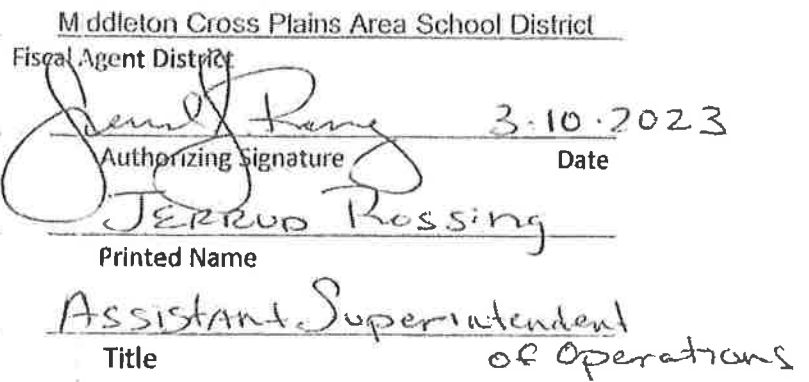 M ddleton Cross Plains Area School District
Fiscal Agent District
3.10.2023
Authorizing Signature Date
JERRUD Rossing
Printed Name
Assistant Superintendent
Title of Operations